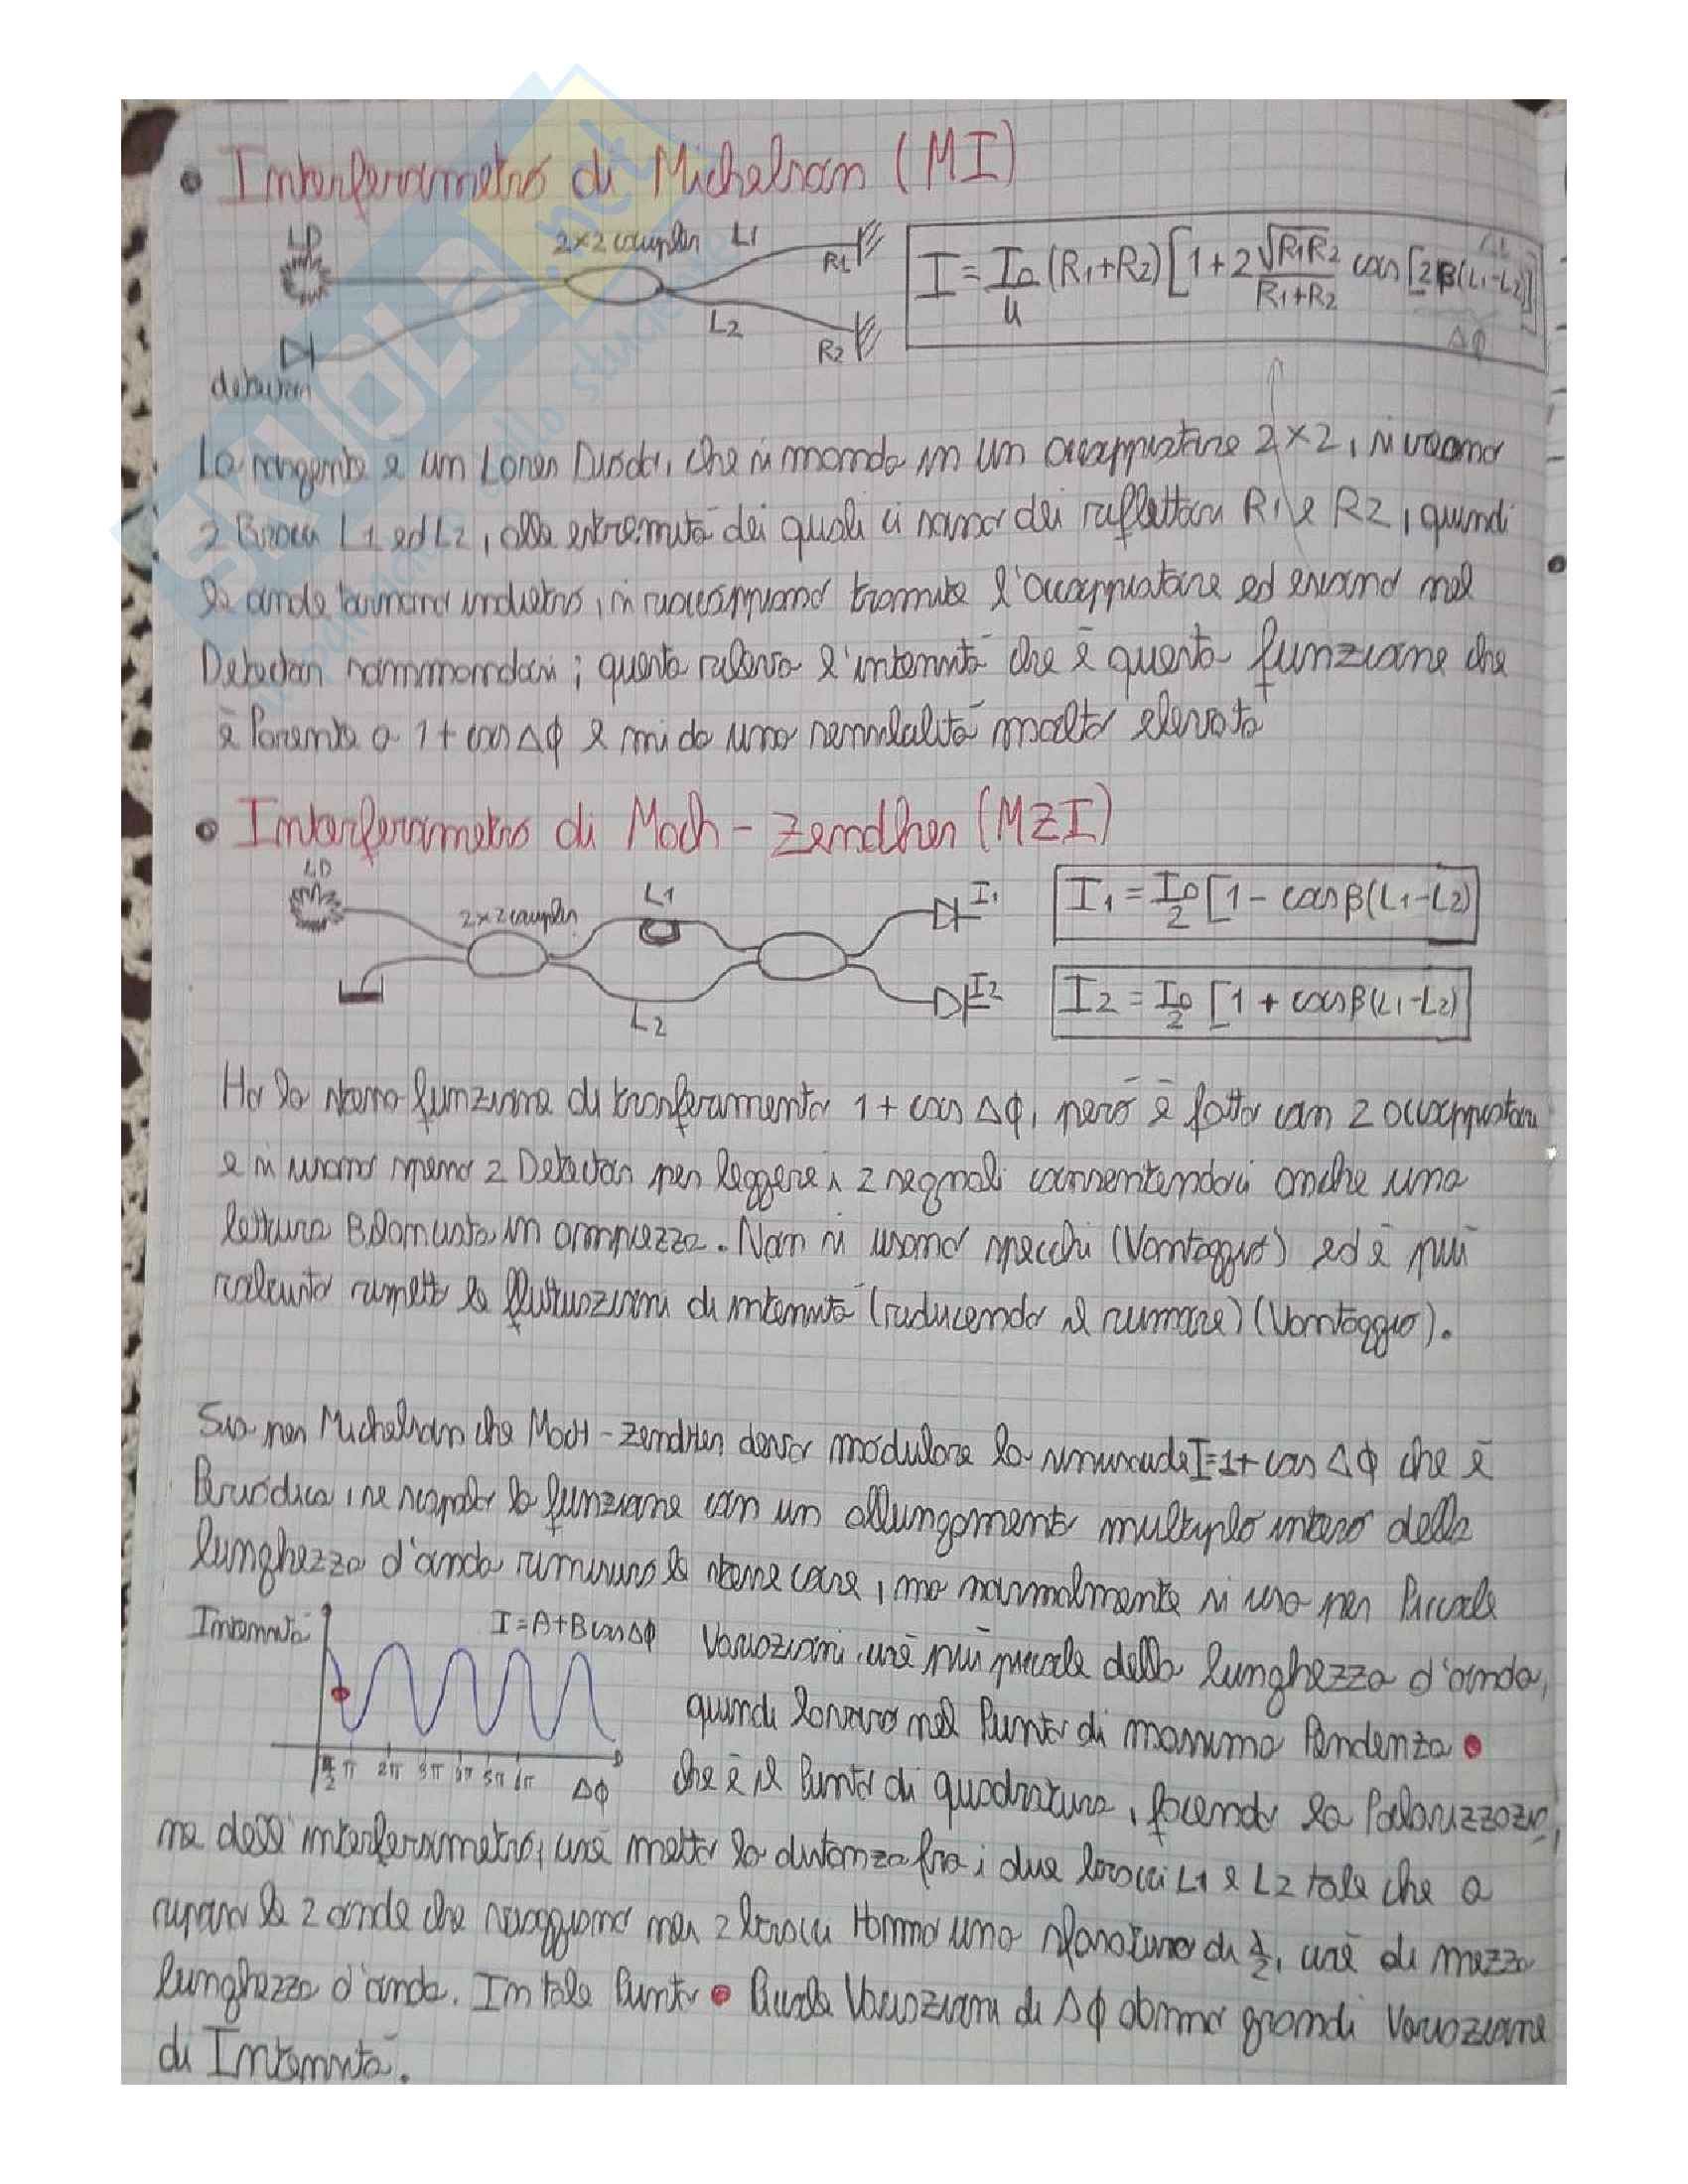 • Interferometro di Michelson (MI)
LD
2×2 coupler L1
R1
I = I0/4 (R1+R2) [1+2 √R1R2/R1+R2 cos [2β(L1-L2)]]
Δφ
L2
R2
detector
La sorgente è un Laser Diodo, che si manda in un accoppiatore 2×2, si usano
2 Bracci L1 ed L2, alle estremità dei quali ci sono dei riflettori R1 e R2, quindi
le onde tornano indietro, si riaccoppiano tramite l'accoppiatore ed escono nel
Detector sommandosi; questo rileva l'intensità che è questa funzione che
è Parente a 1+cosΔφ e mi da una sensibilità molto elevata
• Interferometro di Mach-Zendher (MZI)
LD
2×2 coupler
L1
I1
I1 = I0/2 [1 - cosβ(L1-L2)
L2
I2
I2 = I0/2 [1 + cosβ(L1-L2)
Ha la stessa funzione di trasferimento 1+cosΔφ, però è fatto con 2 accoppiatori
e si usano spesso 2 Detector per leggere i 2 segnali consentendoci anche una
lettura Bilanciata in ampiezza. Non si usano specchi (Vantaggio) ed è più
robusto rispetto le fluttuazioni di intensità (riducendo il rumore) (Vantaggio).
Sia per Michelson che Mach-Zendher devo modulare la sinusoide I=1+cosΔφ che è
Periodica, se scopro la funzione con un allungamento multiplo intero della
lunghezza d'onda rimisuro le stesse cose, ma normalmente si usa per Piccole
Intensità
I=A+BcosΔφ
Variazioni, cioè più piccole della lunghezza d'onda,
quindi lavoro nel Punto di massima Pendenza •
π/2 π 2π 3π 4π 5π 6π Δφ
che è il Punto di quadratura, facendo la Polarizzazio
ne dell'interferometro, cioè metto la distanza fra i due bracci L1 e L2 tale che a
riposo le 2 onde che viaggiano nei 2 bracci Hanno una sfasatura di λ/2, cioè di mezza
lunghezza d'onda. In tale Punto • Piccole Variazioni di Δφ danno grandi Variazione
di Intensità.